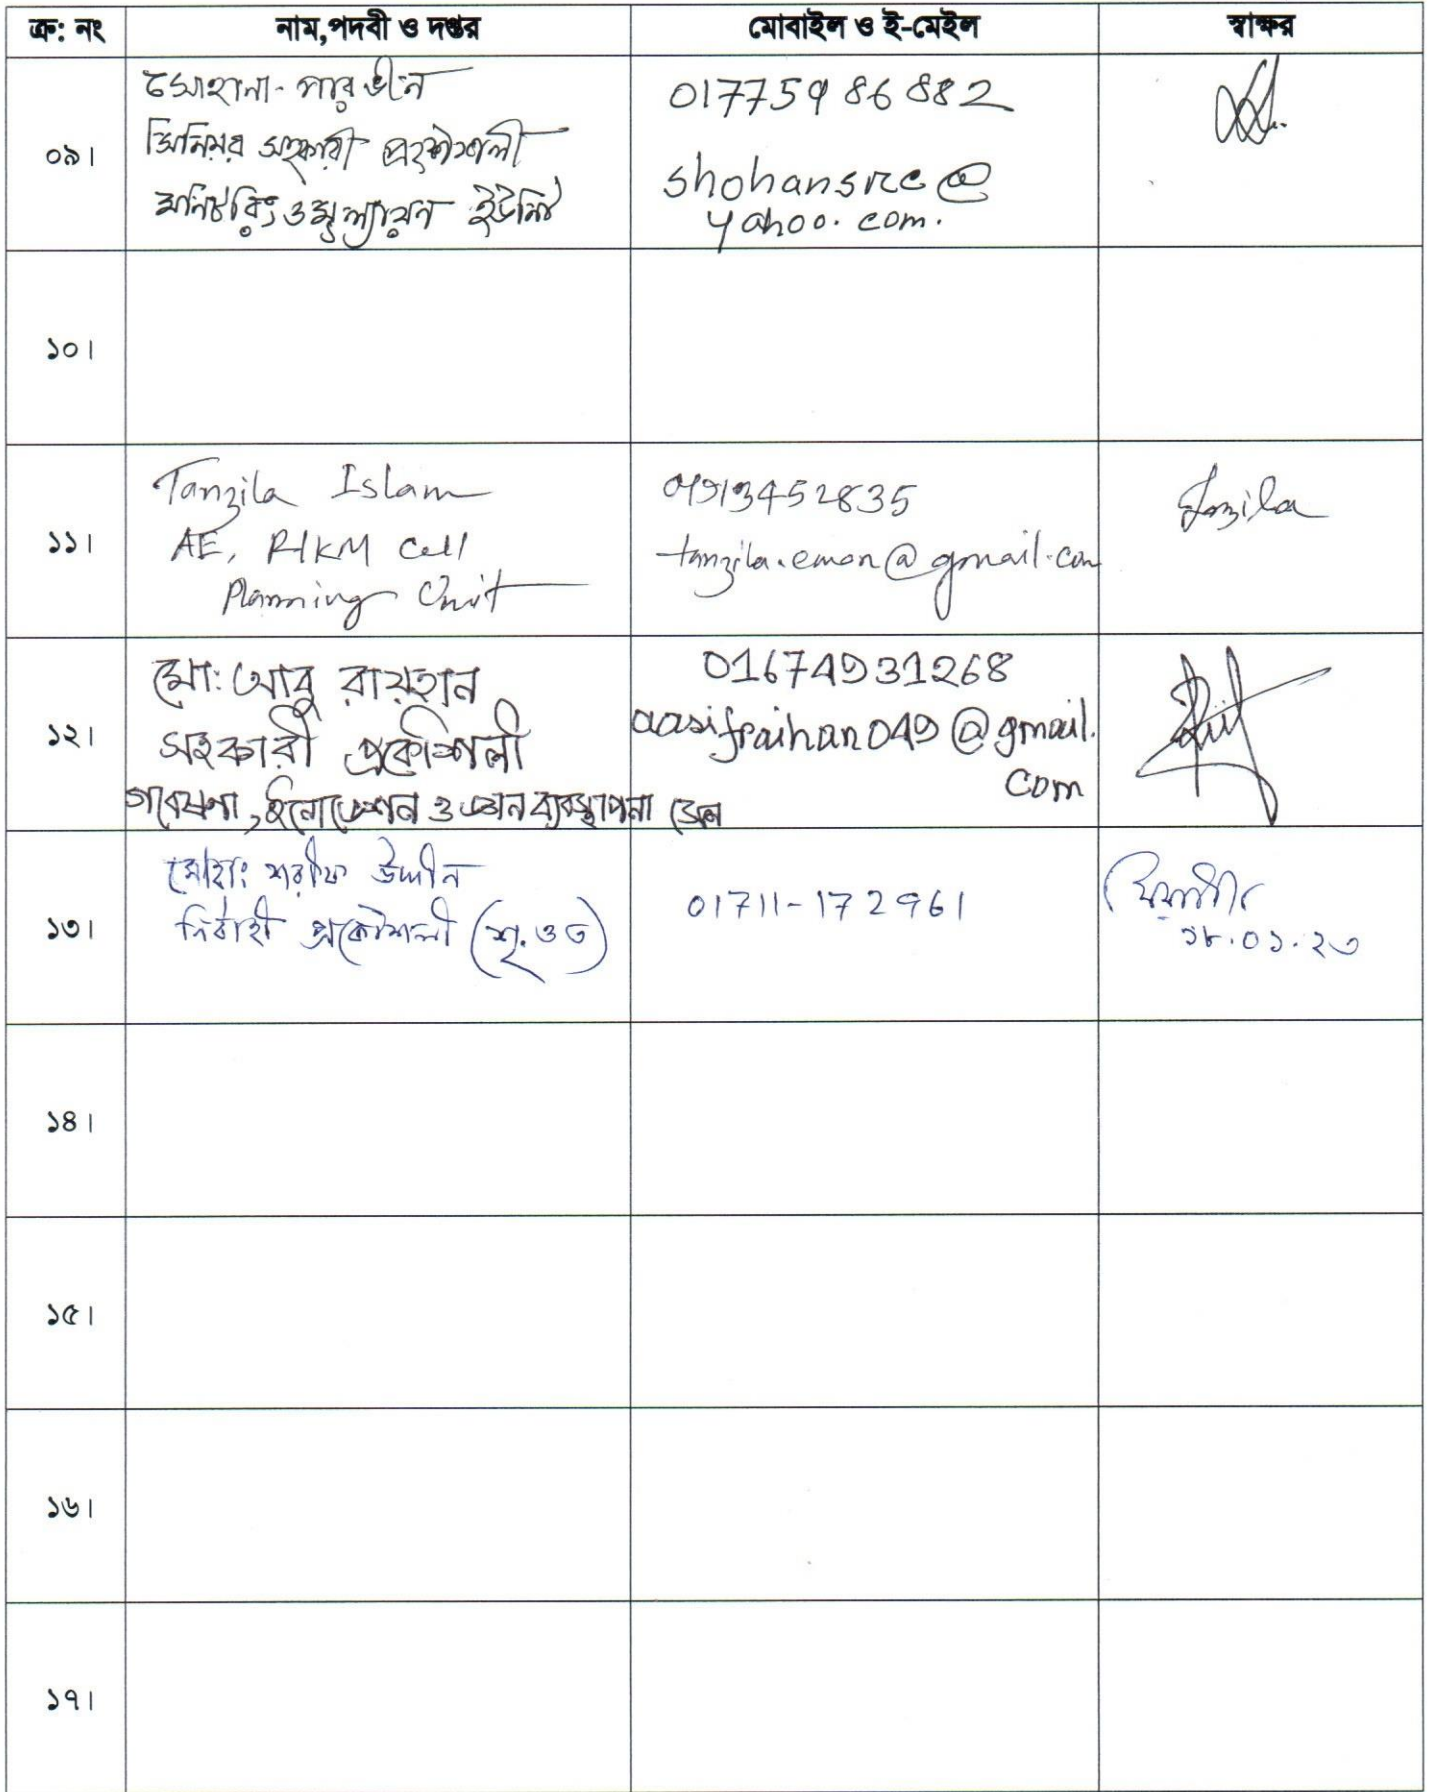 ক্র: নং নাম,পদবী ও দপ্তর মোবাইল ও ই-মেইল স্বাক্ষর
০৯।
সোহানা পারভীন
সিনিয়র সহকারী প্রকৌশলী
মনিটরিং ও মূল্যায়ন ইউনিট
01775986882
shohansrce@
yahoo.com.
১০।
১১।
Tanzila Islam
AE, RIKM Cell
Planning Unit
01913452835
tanzila.emon@gmail.com
Tanzila
১২।
মো: আবু রায়হান
সহকারী প্রকৌশলী
গবেষণা, ইনোভেশন ও জ্ঞান ব্যবস্থাপনা সেল
01674931268
aasifraihan049@gmail.
com
১৩।
মোহাঃ শরীফ উদ্দীন
নির্বাহী প্রকৌশলী (শৃ. ও ত)
01711-172961
১৮.০১.২৩
১৪।
১৫।
১৬।
১৭।